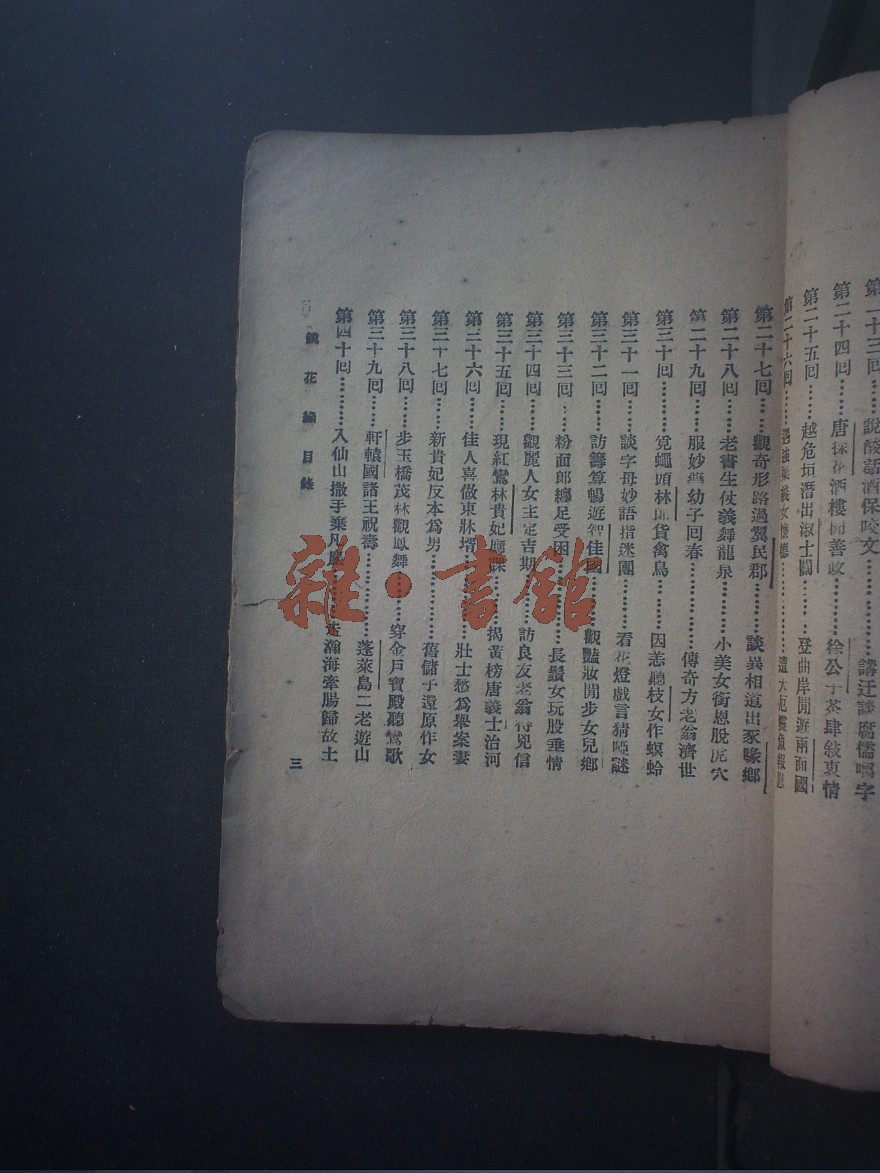 第二十三回……說酸話酒保咬文……講迂談腐儒嚼字
第二十四回……唐探花酒樓聞善政……徐公子茶肆敍衷情
第二十五回……越危垣潛出淑士關……登曲岸閒遊兩面國
第二十六回……遇強梁義女懷德……遭大厄魚報恩
第二十七回……觀奇形路過翼民郡……談異相道出豕喙鄉
第二十八回……老書生仗義舞龍泉……小美女銜恩脫虎穴
第二十九回……服妙藥幼子回春……傳奇方老翁濟世
第三十回……覓蠅頭林郎貨禽鳥……因恙聽枝女作螟蛉
第三十一回……談字母妙語指迷團……看花燈戲言猜啞謎
第三十二回……訪籌算暢遊智佳國……觀豔妝閒步女兒鄉
第三十三回……粉面郎纏足受困……長鬚女玩股垂情
第三十四回……觀麗人女主定吉期……訪良友老翁得兇信
第三十五回……現紅鸞林貴妃應課……揭黃榜唐義士治河
第三十六回……佳人喜做東牀壻……壯士愁爲舉案妻
第三十七回……新貴妃反本爲男……舊儲子還原作女
第三十八回……步玉橋茂林觀鳳舞……穿金戶寶殿聽鸞歌
第三十九回……軒轅國諸王祝壽……蓬萊島二老遊山
第四十回……入仙山撒手棄凡……走瀚海牽腸歸故土
鏡花緣 目錄
三
雜·書館